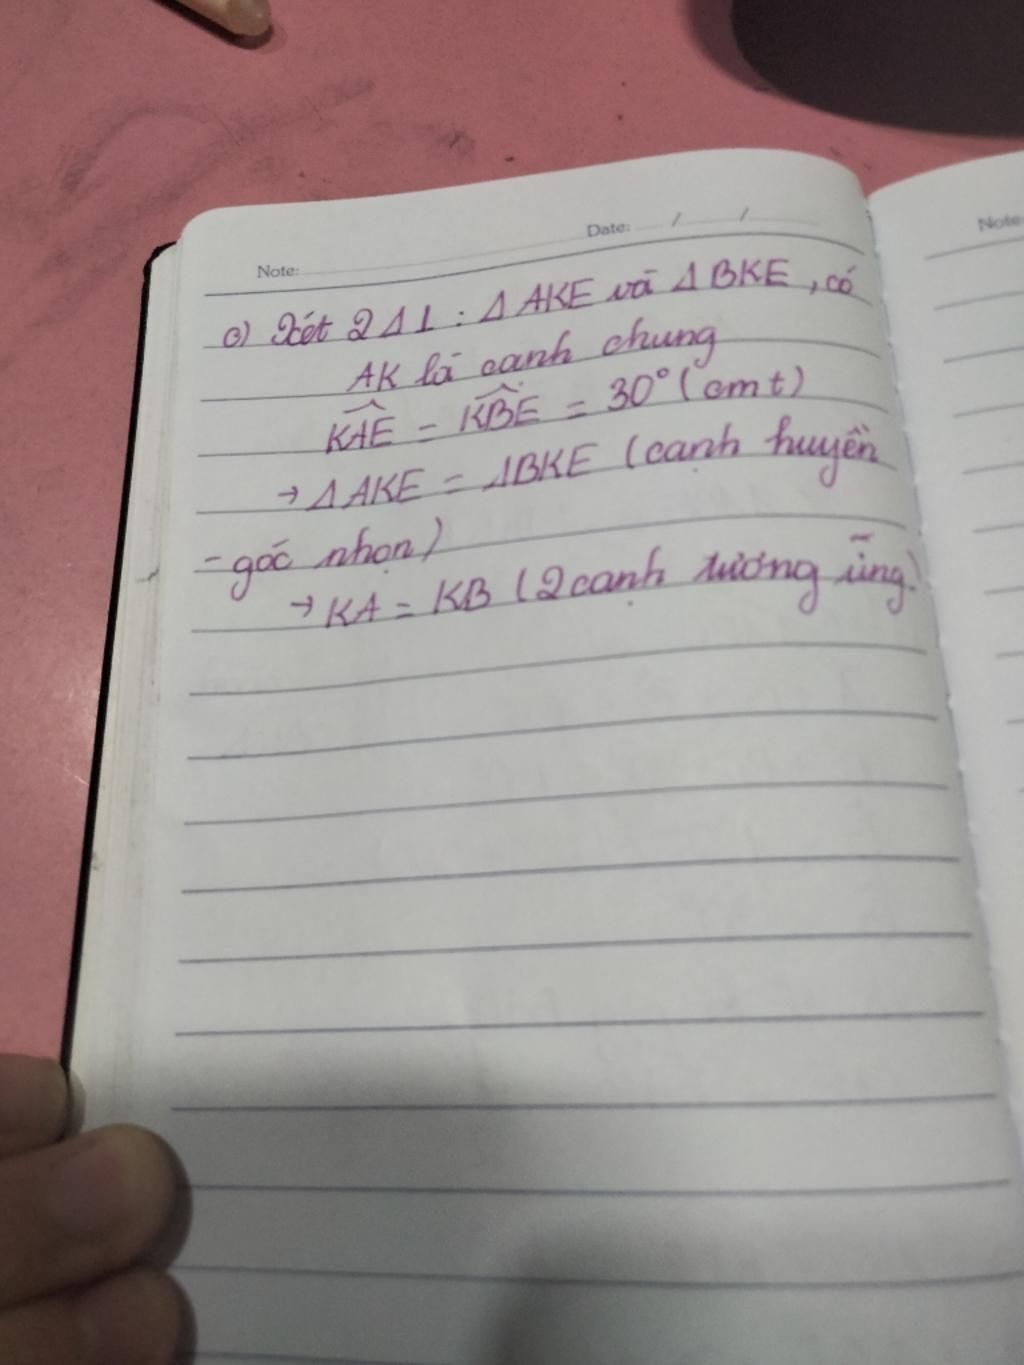 Note:
Date: / /
Note
c) Xét 2 Δ⊥ : Δ AKE và Δ BKE, có
AK là cạnh chung
KAE = KBE = 30° (cmt)
→ Δ AKE = ΔBKE (cạnh huyền
- góc nhọn)
→ KA = KB (2 cạnh tương ứng)